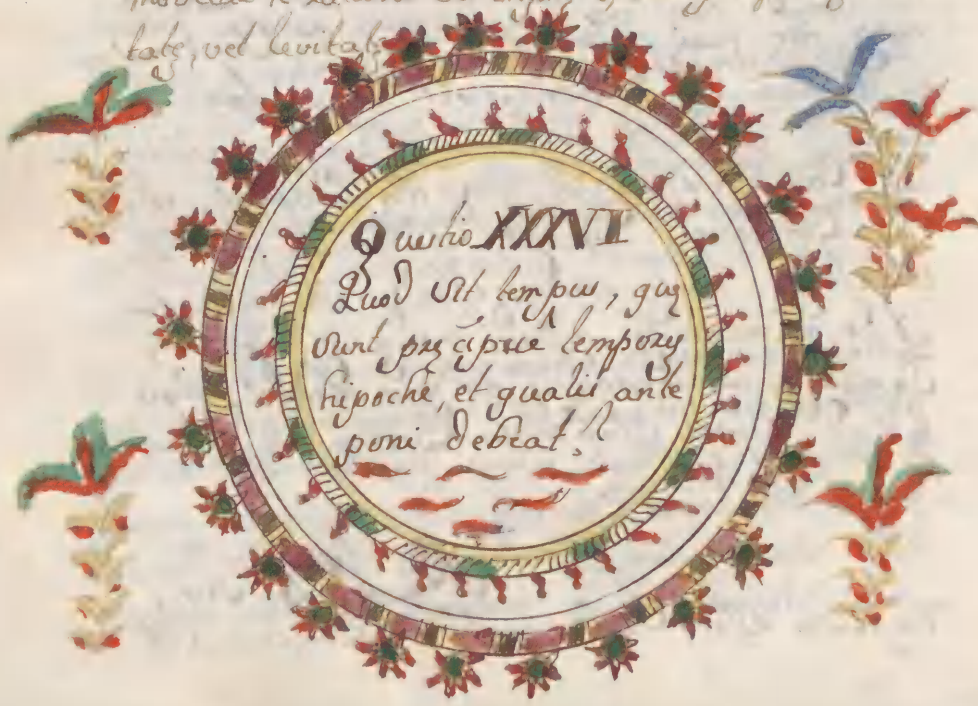 tatę, vel levitatę
Quęstio XXXVI
Quod sit tempus, quę
sunt pręcipuę temporis
hipochę, et qualis ante
poni debeat?